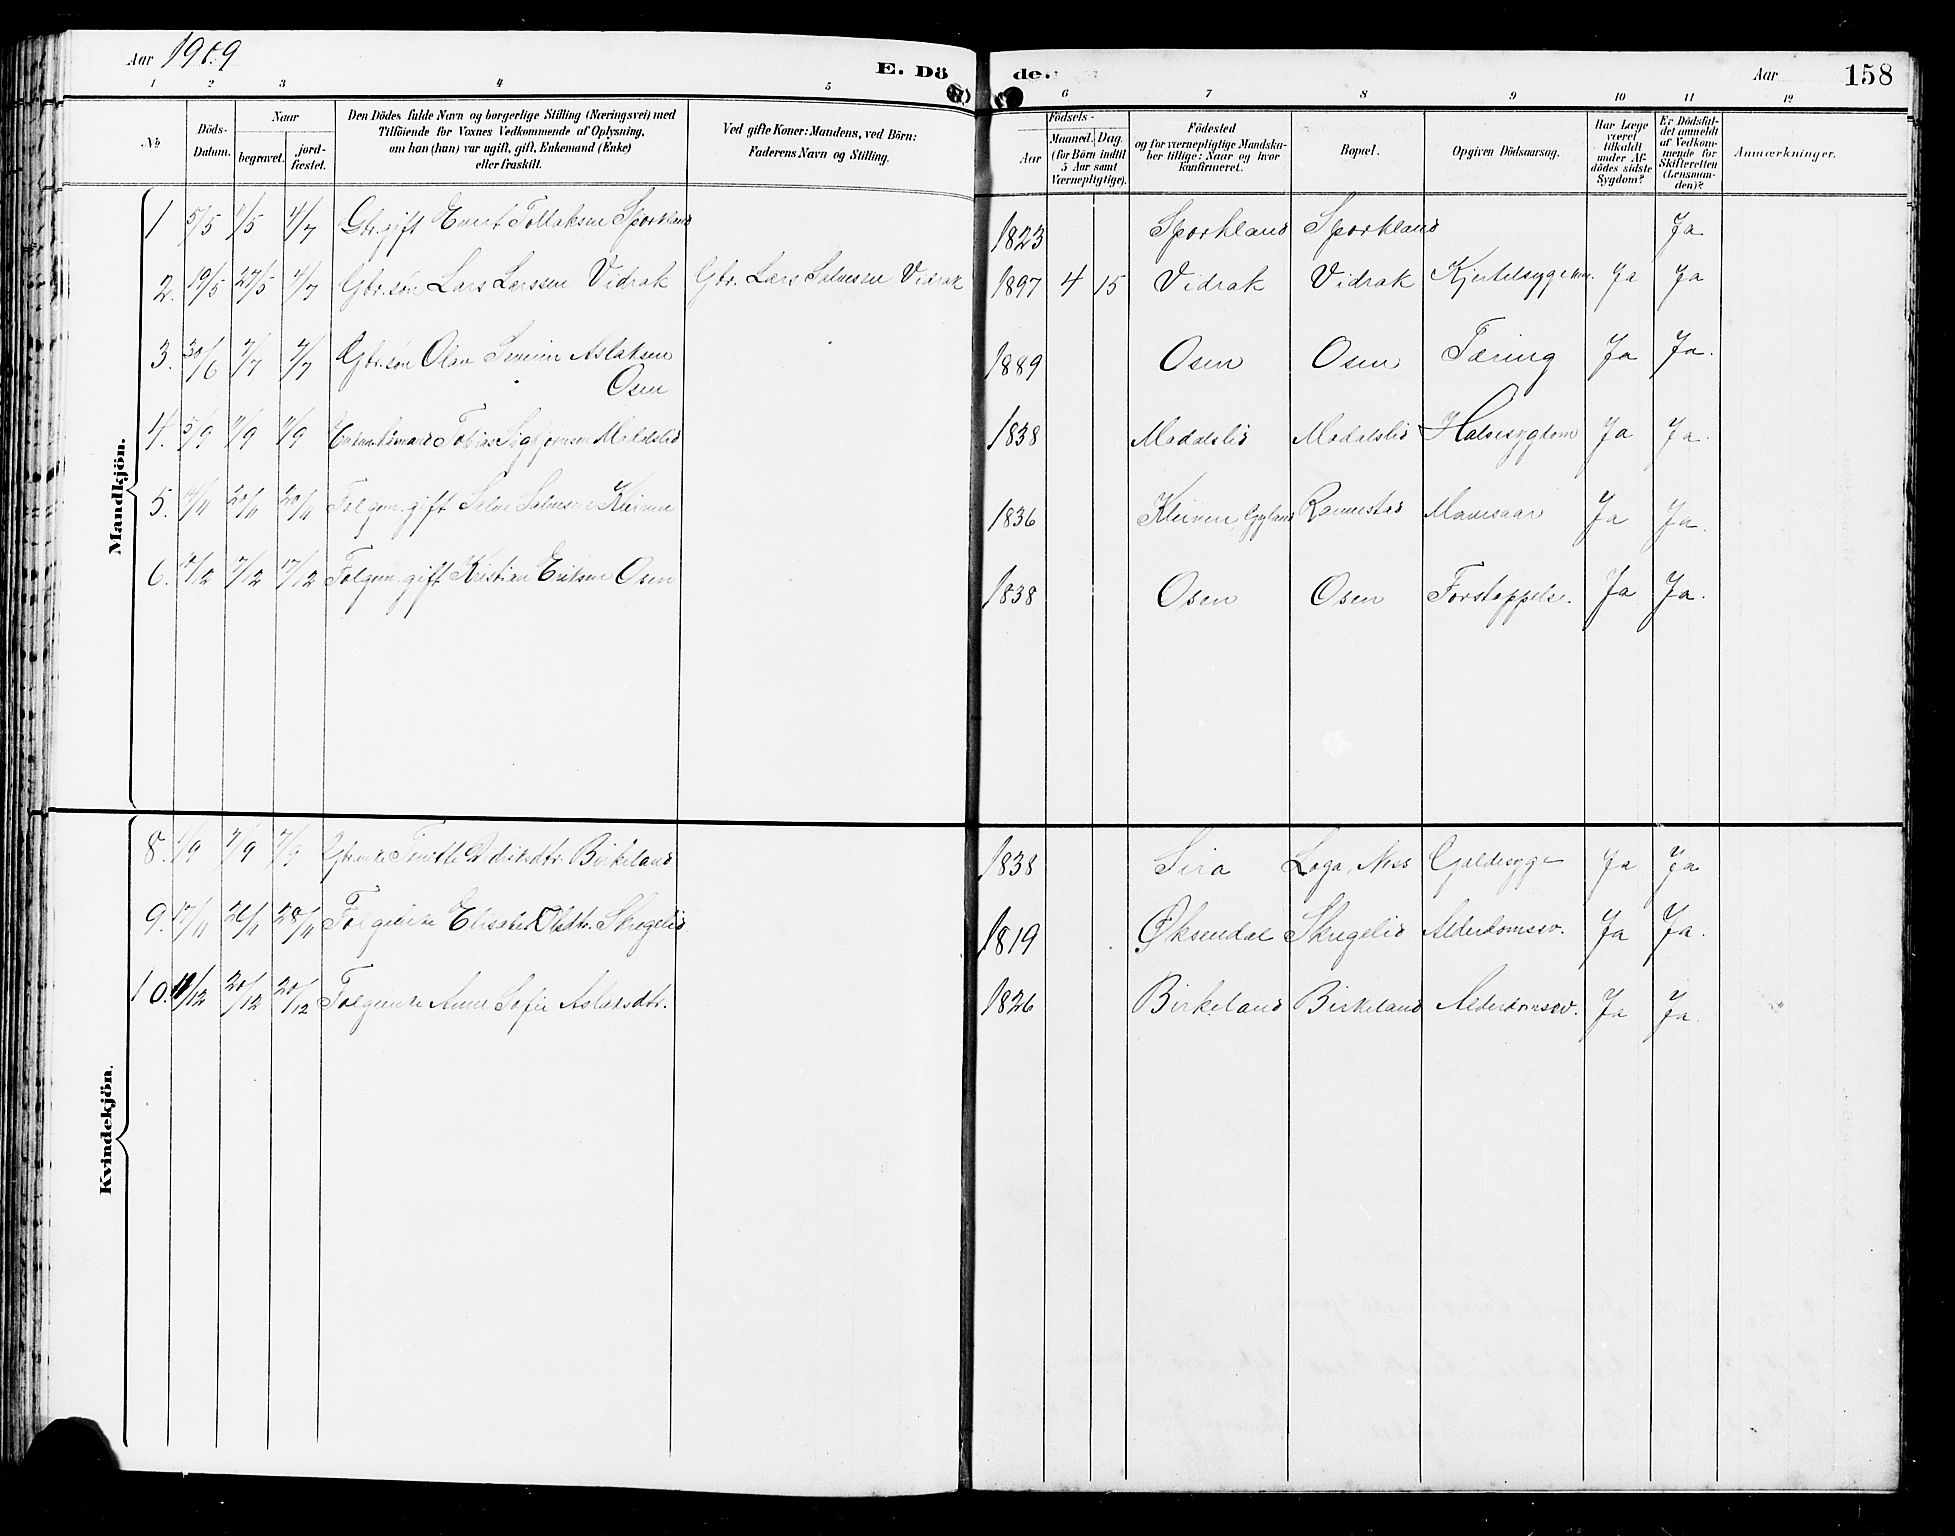 Aar 1909
E. Döde.
Aar
158
1 2 3 4 5 6 7 8 9 10 11 12
No
Döds-Datum.
Naar
begravet.
jord-fæstet.
Den Dödes fulde Navn og borgerlige Stilling (Næringsvei) med
Tilföiende for Voxnes Vedkommende af Oplysning,
om han (hun) var ugift, gift, Enkemand (Enke)
eller fraskilt.
Ved gifte Koner: Mandens, ved Börn:
Faderens Navn og Stilling.
Födsels-
Aar
Maaned. Dag.
(for Börn indtil
5 Aar samt
Værnepligtige).
Födested
og for værnepligtige Mandska-
ber tillige: Naar og hvor
konfirmeret.
Bopæl.
Opgiven Dödsaarsag.
Har Læge
været
tilkaldt
under Af-
dödes sidste
Sygdom?
Er Dödsfal-
det anmeldt
af Vedkom-
mende for
Skifteretten
(Lensman-
den)?
Anmærkninger.
Mandkjön.
1 5/5 4/7 Gbr. gift Tollaksen Sporkland 1823 Sporkland Sporkland Ja
2. 19/5 27/5 4/7 Gbr.søn Lars Larssen Vidrak Gbr. Lars Salvesen Vidrak 1897 4 15 Vidrak Vidrak Ja Ja
3. 30/6 7/7 7/7 Gbr.søn Olav Aslaksen
Osen 1889 Osen Osen Tæring Ja Ja.
4. 5/9 Enkemand Tobias Sigbjørnsen 1838 Halsesygdom Ja Ja.
5. 14/11 20/11 20/11 Folgem. gift Salvesen 1836 Gyland Ja Ja.
6. 17/12 Folgem. gift Kristian Eriksen Osen 1838 Osen Osen Forstoppelse. Ja Ja.
Kvindekjön.
8. 1/9 7/9 7/9 Birkeland 1838 Sira Loga, Ness Galdesyge Ja Ja
9. 17/11 28/11 Folgeenke Elisabet Skregelid 1819 Øksendal Skregelid Alderdomssv. Ja Ja.
10. 11/12 20/12 20/12 Folgeenke Anne Sofie Aslaksdtr. 1826 Birkeland Birkeland Alderdomssv. Ja Ja.